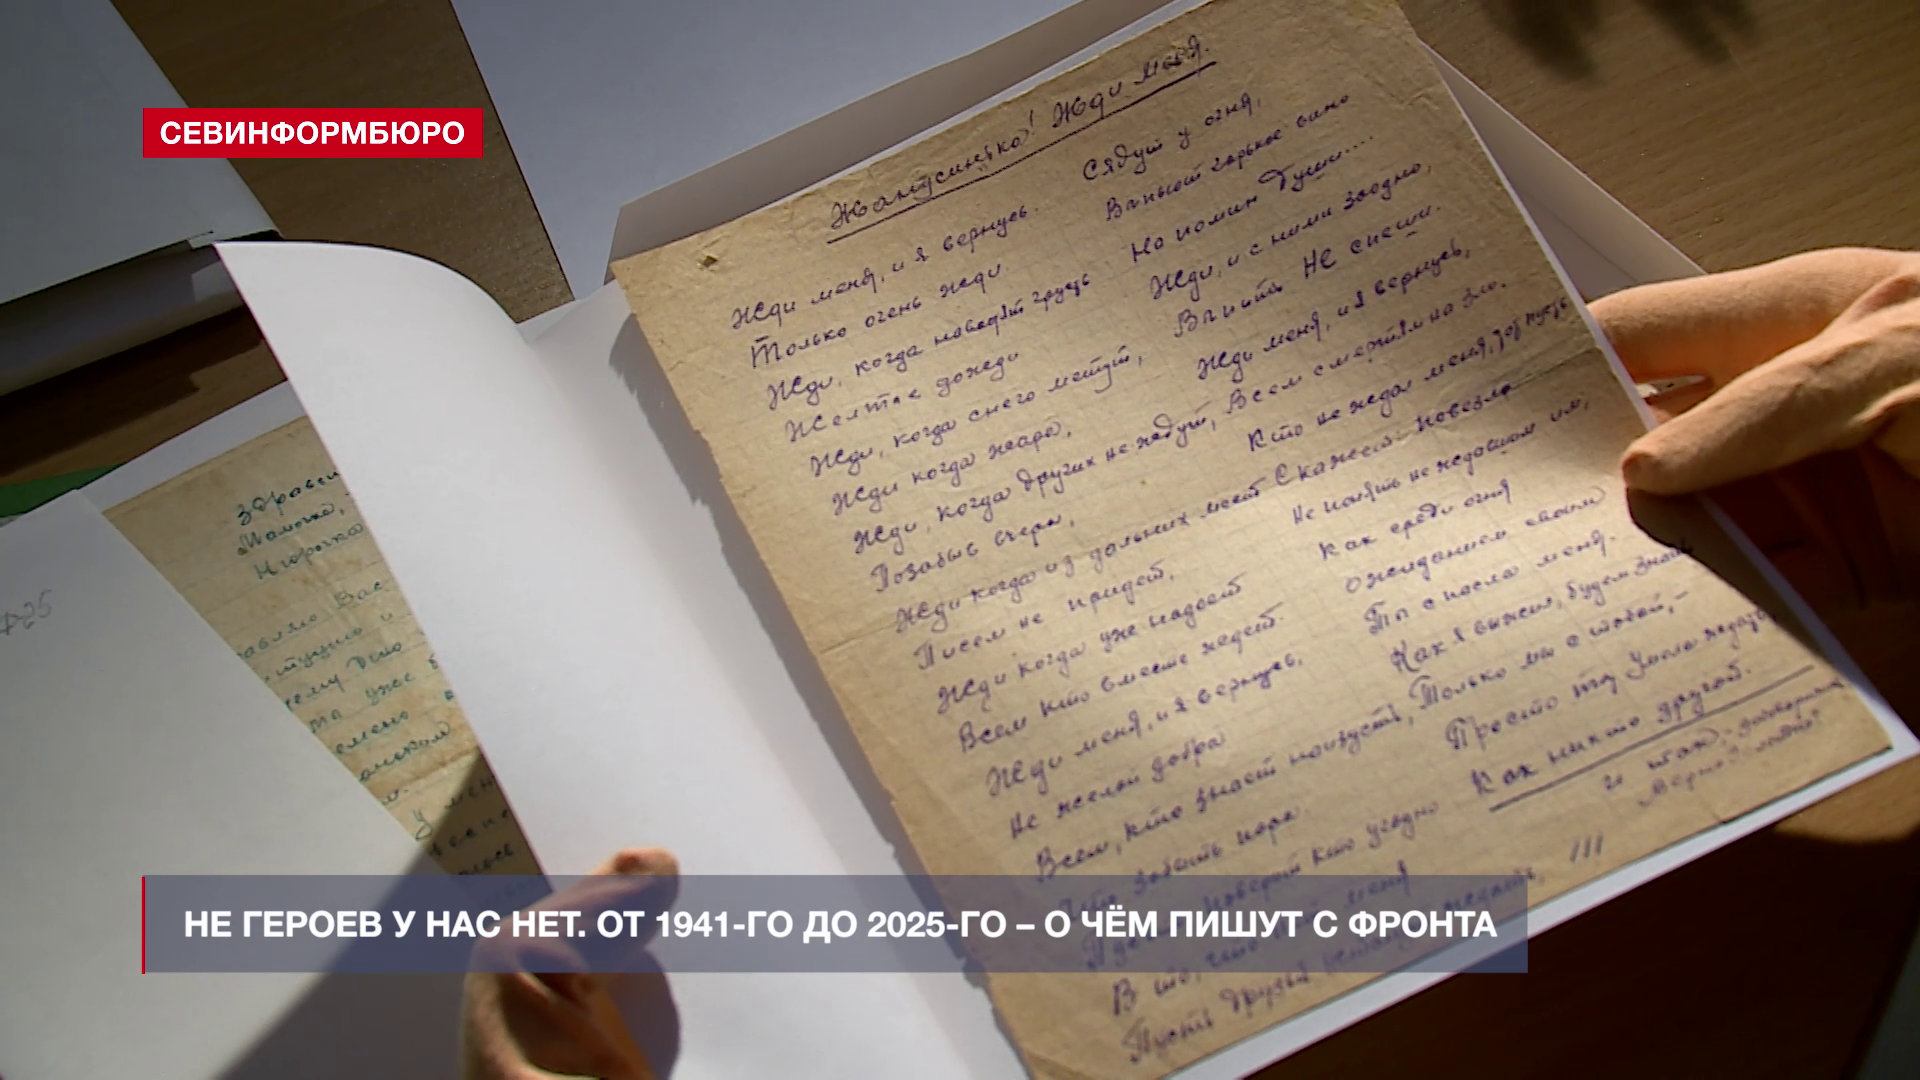 СЕВИНФОРМБЮРО
Жди меня.
Жди меня, и я вернусь.
Только очень жди.
Жди, когда наводят грусть
Желтые дожди
Жди, когда снега метут,
Жди когда жара,
Жди, когда других не ждут,
Позабыв вчера,
Жди когда из дальних мест
Писем не придет,
Жди когда уже надоест
Всем кто вместе ждет.
Жди меня, и я вернусь,
Не желай добра
Всем, кто знает наизусть,
Что забыть пора.
поверят кто угодно
В то, что меня
Пусть друзья
Сядут у огня,
Выпьют горькое вино
На помин души....
Жди, и с ними заодно,
Выпить НЕ спеши.
Жди меня, и я вернусь,
Всем смертям на зло.
Кто не ждал меня, тот пусть
Скажет: Повезло
Не понять не ждавшим им,
Как среди огня
Ожиданием своим
Ты спасла меня.
Как я выжил, будем знать
Только мы с тобой,-
Просто ты умела ждать
Как никто другой.
Здравст
Мамочка,
Вас
уже
У мен
НЕ ГЕРОЕВ У НАС НЕТ. ОТ 1941-ГО ДО 2025-ГО – О ЧЁМ ПИШУТ С ФРОНТА